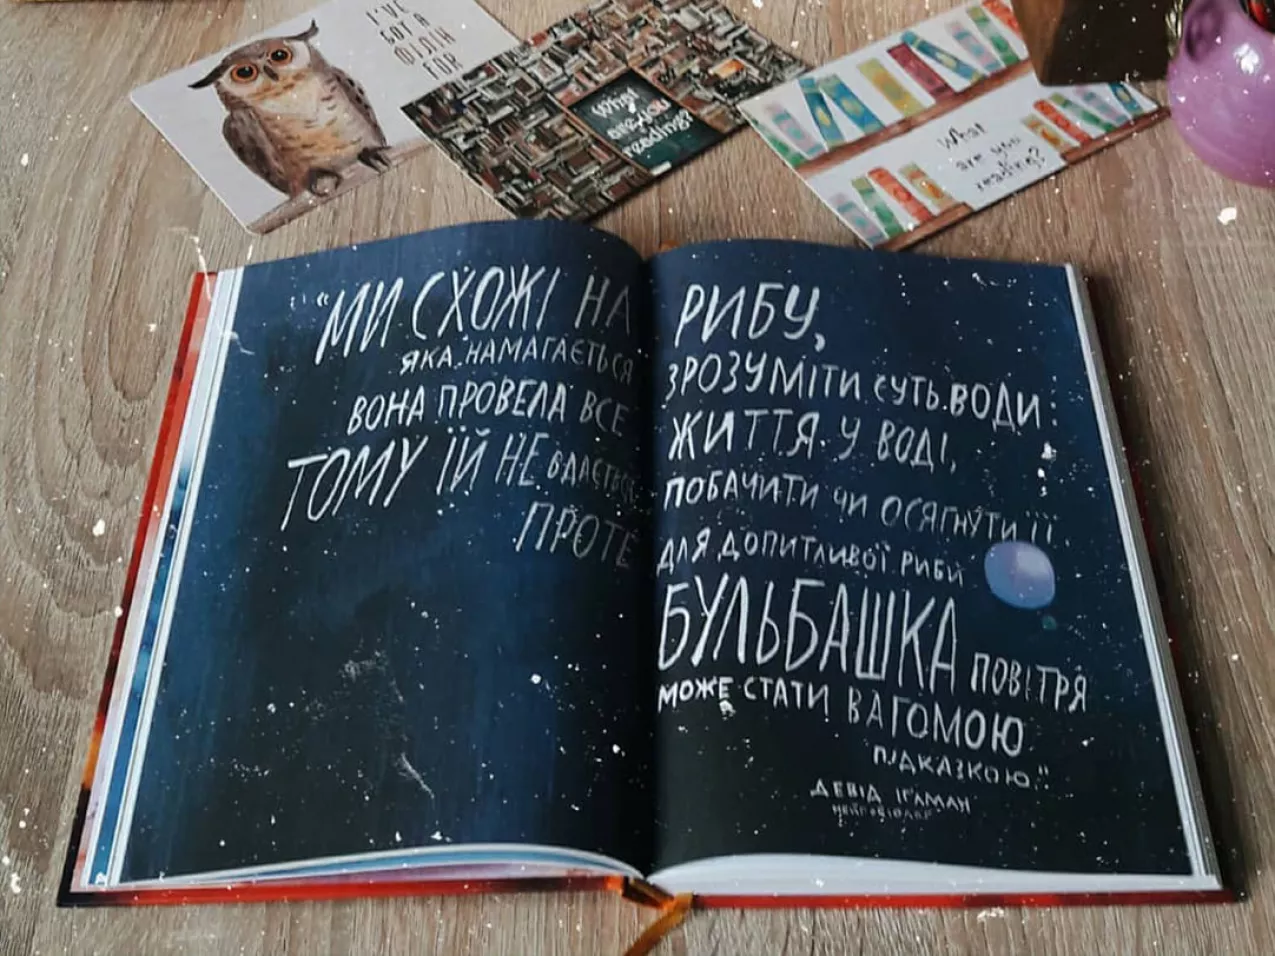 I'VE
GOT A
ФІЛІН
FOR
What
are you
reading?
What
are you
reading?
"МИ СХОЖІ НА РИБУ,
ЯКА НАМАГАЄТЬСЯ ЗРОЗУМІТИ СУТЬ ВОДИ:
ВОНА ПРОВЕЛА ВСЕ ЖИТТЯ У ВОДІ,
ТОМУ ЇЙ НЕ ВДАЄТЬСЯ ПОБАЧИТИ ЧИ ОСЯГНУТИ ЇЇ.
ПРОТЕ ДЛЯ ДОПИТЛИВОЇ РИБИ
БУЛЬБАШКА ПОВІТРЯ
МОЖЕ СТАТИ ВАГОМОЮ
ПІДКАЗКОЮ."
ДЕВІД ІҐЛМАН
НЕЙРОБІОЛОГ